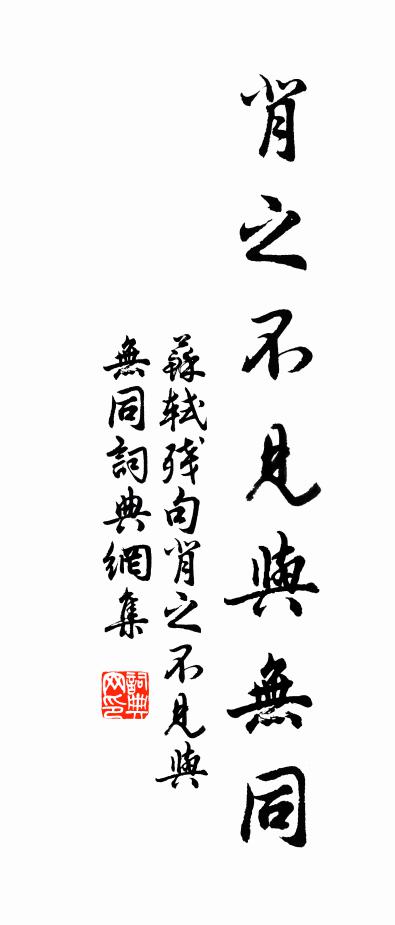 肯之不見與無同
蘇軾殘句肯之不見與
無同詞典網集
詞典
网印